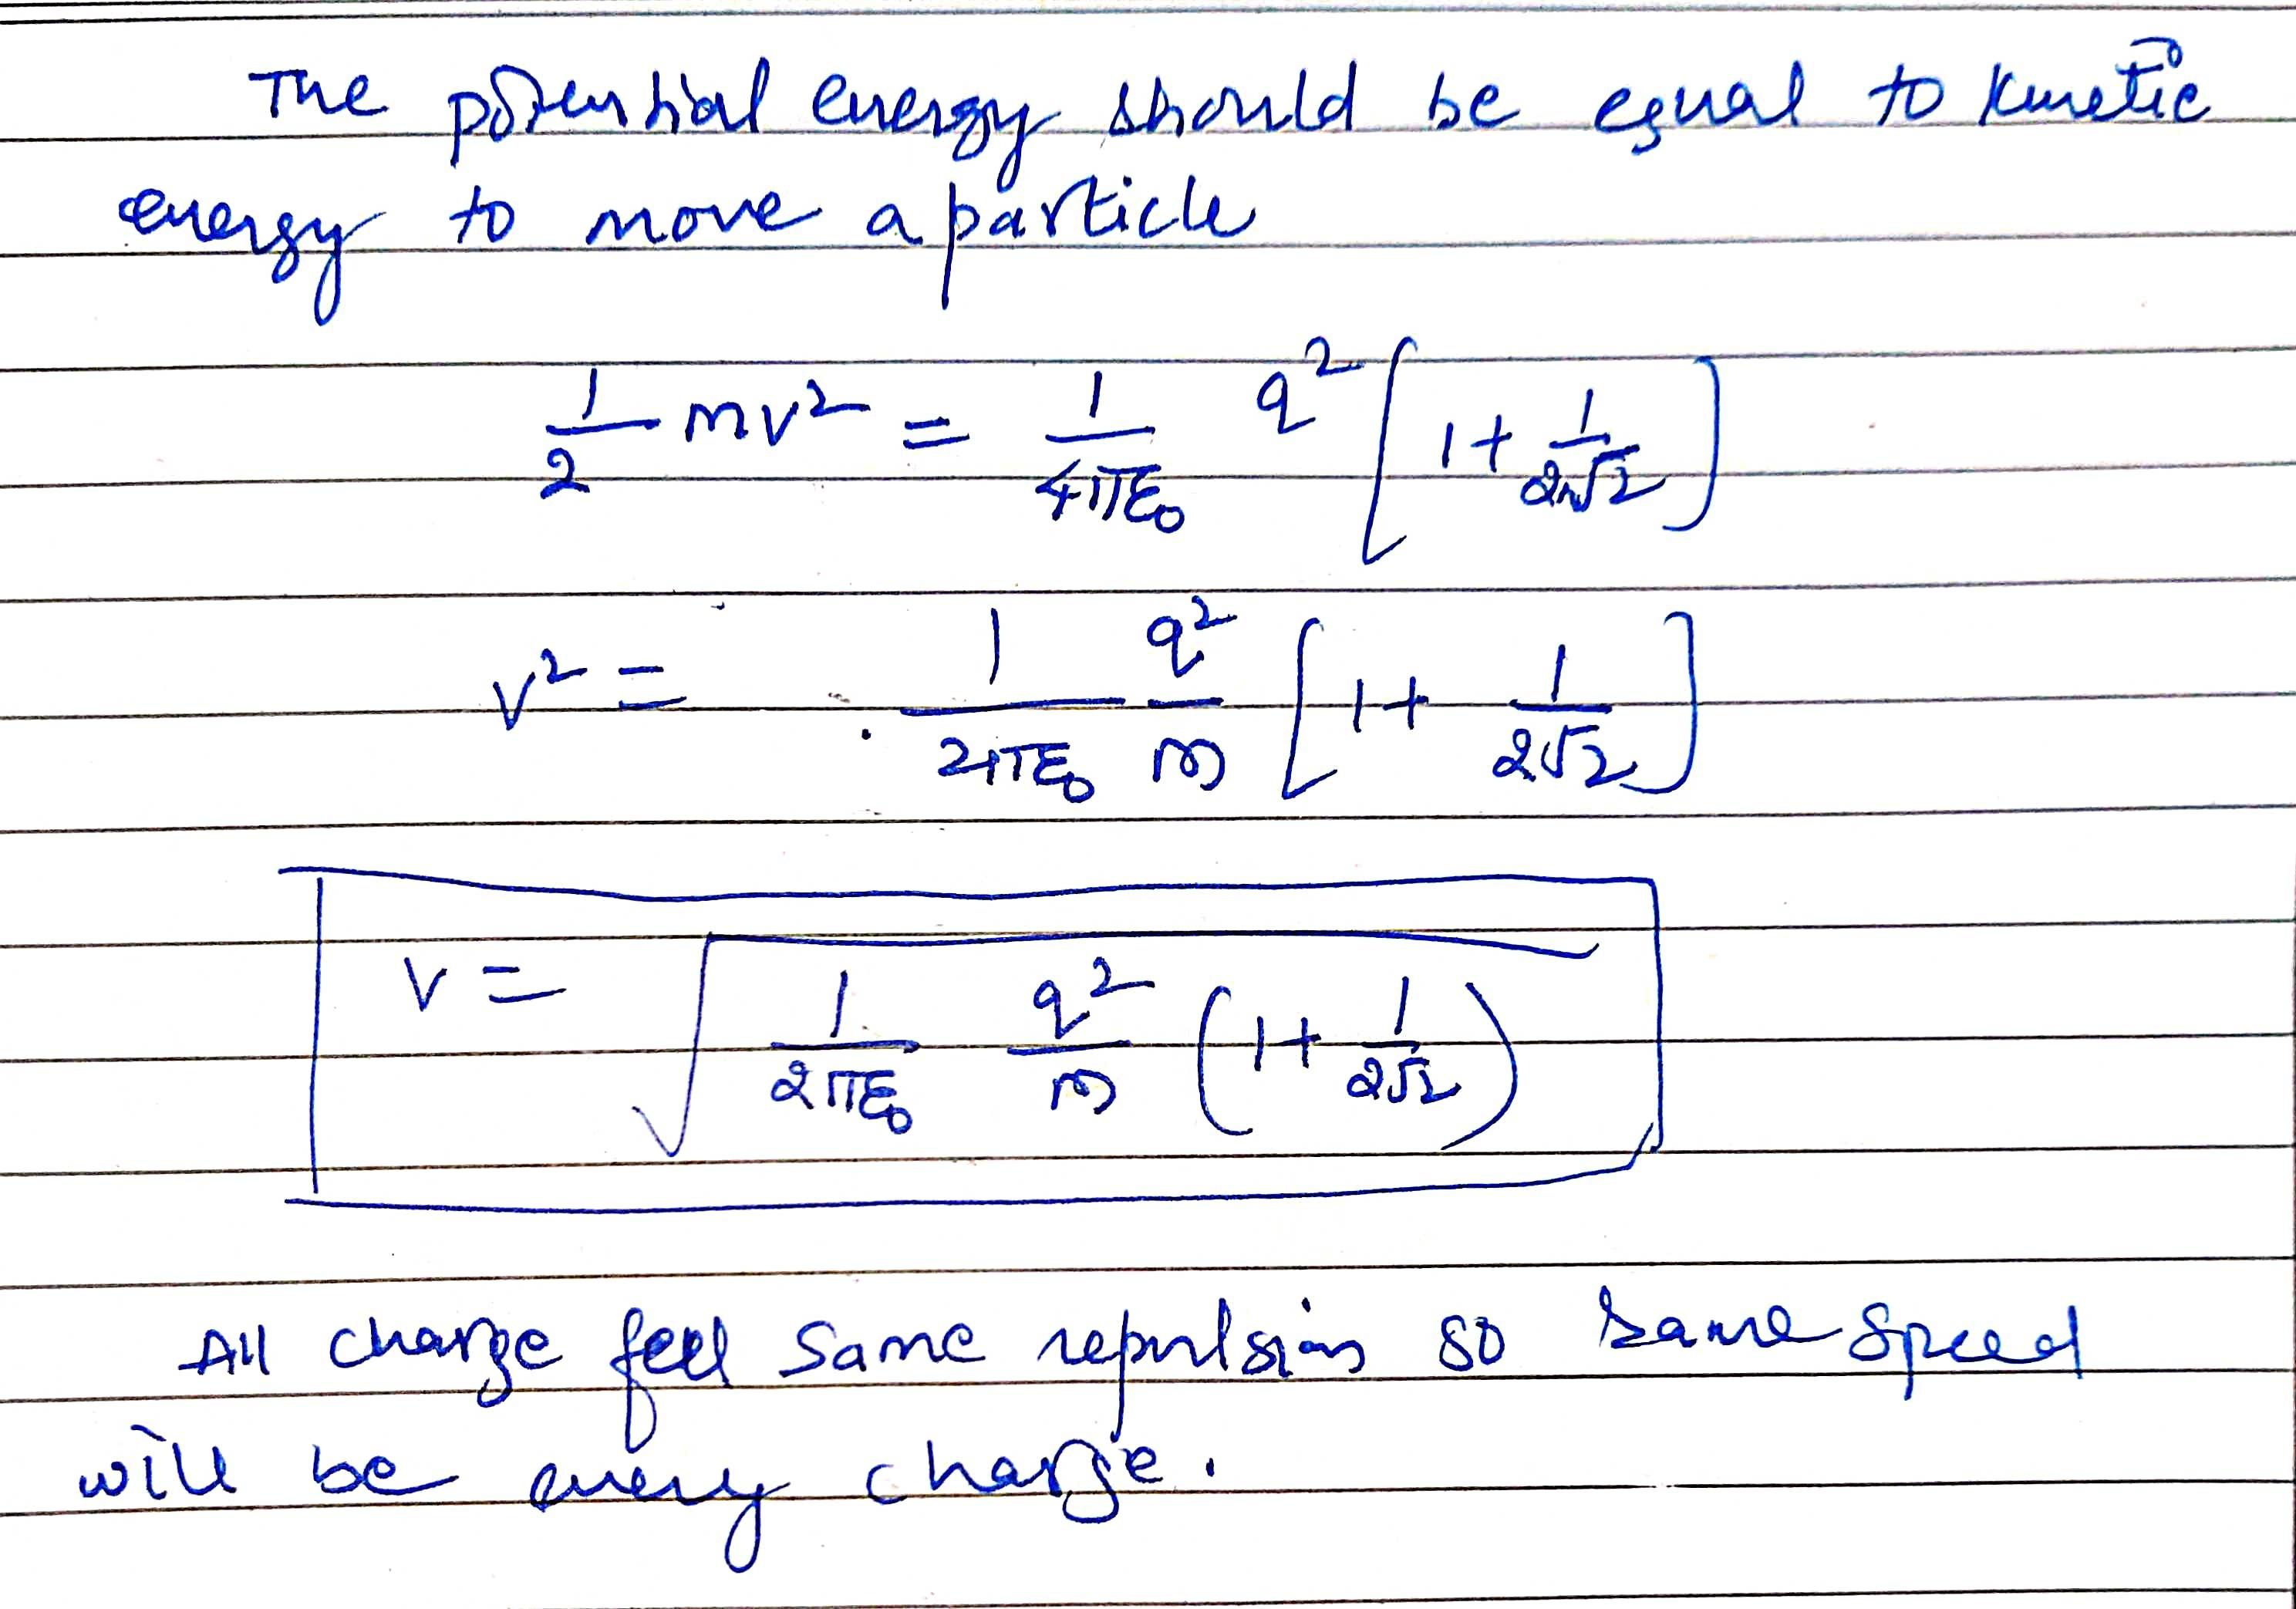 The potential energy should be equal to kinetic
energy to move a particle
1/2 mv² = 1/4πε₀ q² [1 + 1/2√2]
v² = 1/2πε₀ q²/m [1 + 1/2√2]
v = √(1/2πε₀ q²/m (1 + 1/2√2))
All charge feel same repulsion so same speed
will be every charge.